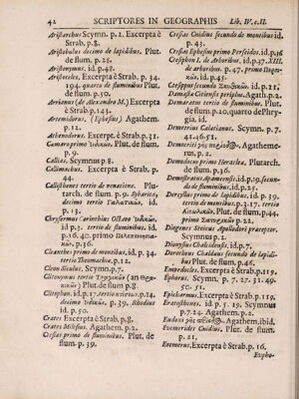 42 SCRIPTORES IN GEOGRAPHIS Lib. IV. c. II.
Aristarchus Scymn. p. 2. Excerpta è
Strab. p. 8.
Aristobulus decimo de lapidibus. Plut.
de flum. p. 25.
Aristonymus, id. p. 48.
Aristoteles, Excerpta è Strab. p. 34.
194. quarto de fluminibus Plut.
de flum. p. 50.
Arrianus (de Alexandro M.) Excerpta
è Strab. p. 143.
Artemidorus, (Ephesius) Agathem.
p. 12.
Athenodorus. Excerpt. è Strab. p. 31.
p. 9.
Callias. Scymnus p. 8.
Callimachus, Excerpta è Strab. p.
44.
Callisthenes tertio de venatione. Plu-
tarch. de flum. p. 9. Sybarita,
decimo tertio id.
p. 13.
Chrysermus Corinthius
id. p. 3. tertio de fluminibus. id.
p. 16. 40. primo
p. 36.
Cleanthes primo de montibus, id. p. 34.
tertio Theomachias, p. 12.
Cleon Siculus, Scymn. p. 7.
Plut. de flum p. 8.
Clitophon, id. p. 17. p. 14.
decimo primo, id. p. 39. Rhodius
id. p. 50.
Crates Excerpta è Strab. p. 8.
Crates Milesius. Agathem. p. 2.
Ctesias primo de fluminibus. Plut. de
flum. p. 39.
Ctesias Cnidius secundo de montibus id.
p. 43.
Ctesias Ephesius primo Perseidos. id. p. 36
Ctesiphon l. de Arboribus, id. p. 17. XIII.
de arboribus. p. 47. primo
id. p. 45.
Ctesippus secundo id. p. 11.
Damastes Citiensis proplus. Agath. p. 2.
Demaratus tertio de fluminibus. Plut.
de flum. p. 20. quarto de Phry-
gia, id.
Demetrius Calatianus. Scymn. p. 7.
41. 46. 51.
Agatheme-
rus, p. 2.
Demodocus primo Heraclea, Plutarch.
de flum. p. 36.
Demostratus Apamensis, id. p. 29. secun-
do de fluminibus, id. p. 25.
Dercyllus primo de lapidibus. id. p. 39.
tertio de montibus, p. 3. 17. tertio
Plut. de flum. p. 44.
primo p. 22.
Diogenes Stoicus Apollodori praeceptor.
Scymnus p. 1.
Dionysius Chalcidensis. id. p. 7.
Dorotheus Chaldaeus secundo de lapidi-
bus Plut. de flum. p. 46.
Empedocles, Excerpta è Strab. p. 119.
Ephorus. Scymn. p. 7. 27. 31. 49.
50. 51.
Epidharmus, Excerpta è Strab. p. 119.
Eratosthenes. id. p. 5. 19. Scymnus
p. 7. 24. Agathem. p. 2.
Eudoxus Agathem. ibid.
Euemerus Cnidius. Plut. de flum.
p. 21.
Euemerus, Excerpta è Strab. p. 16.
Eupho-